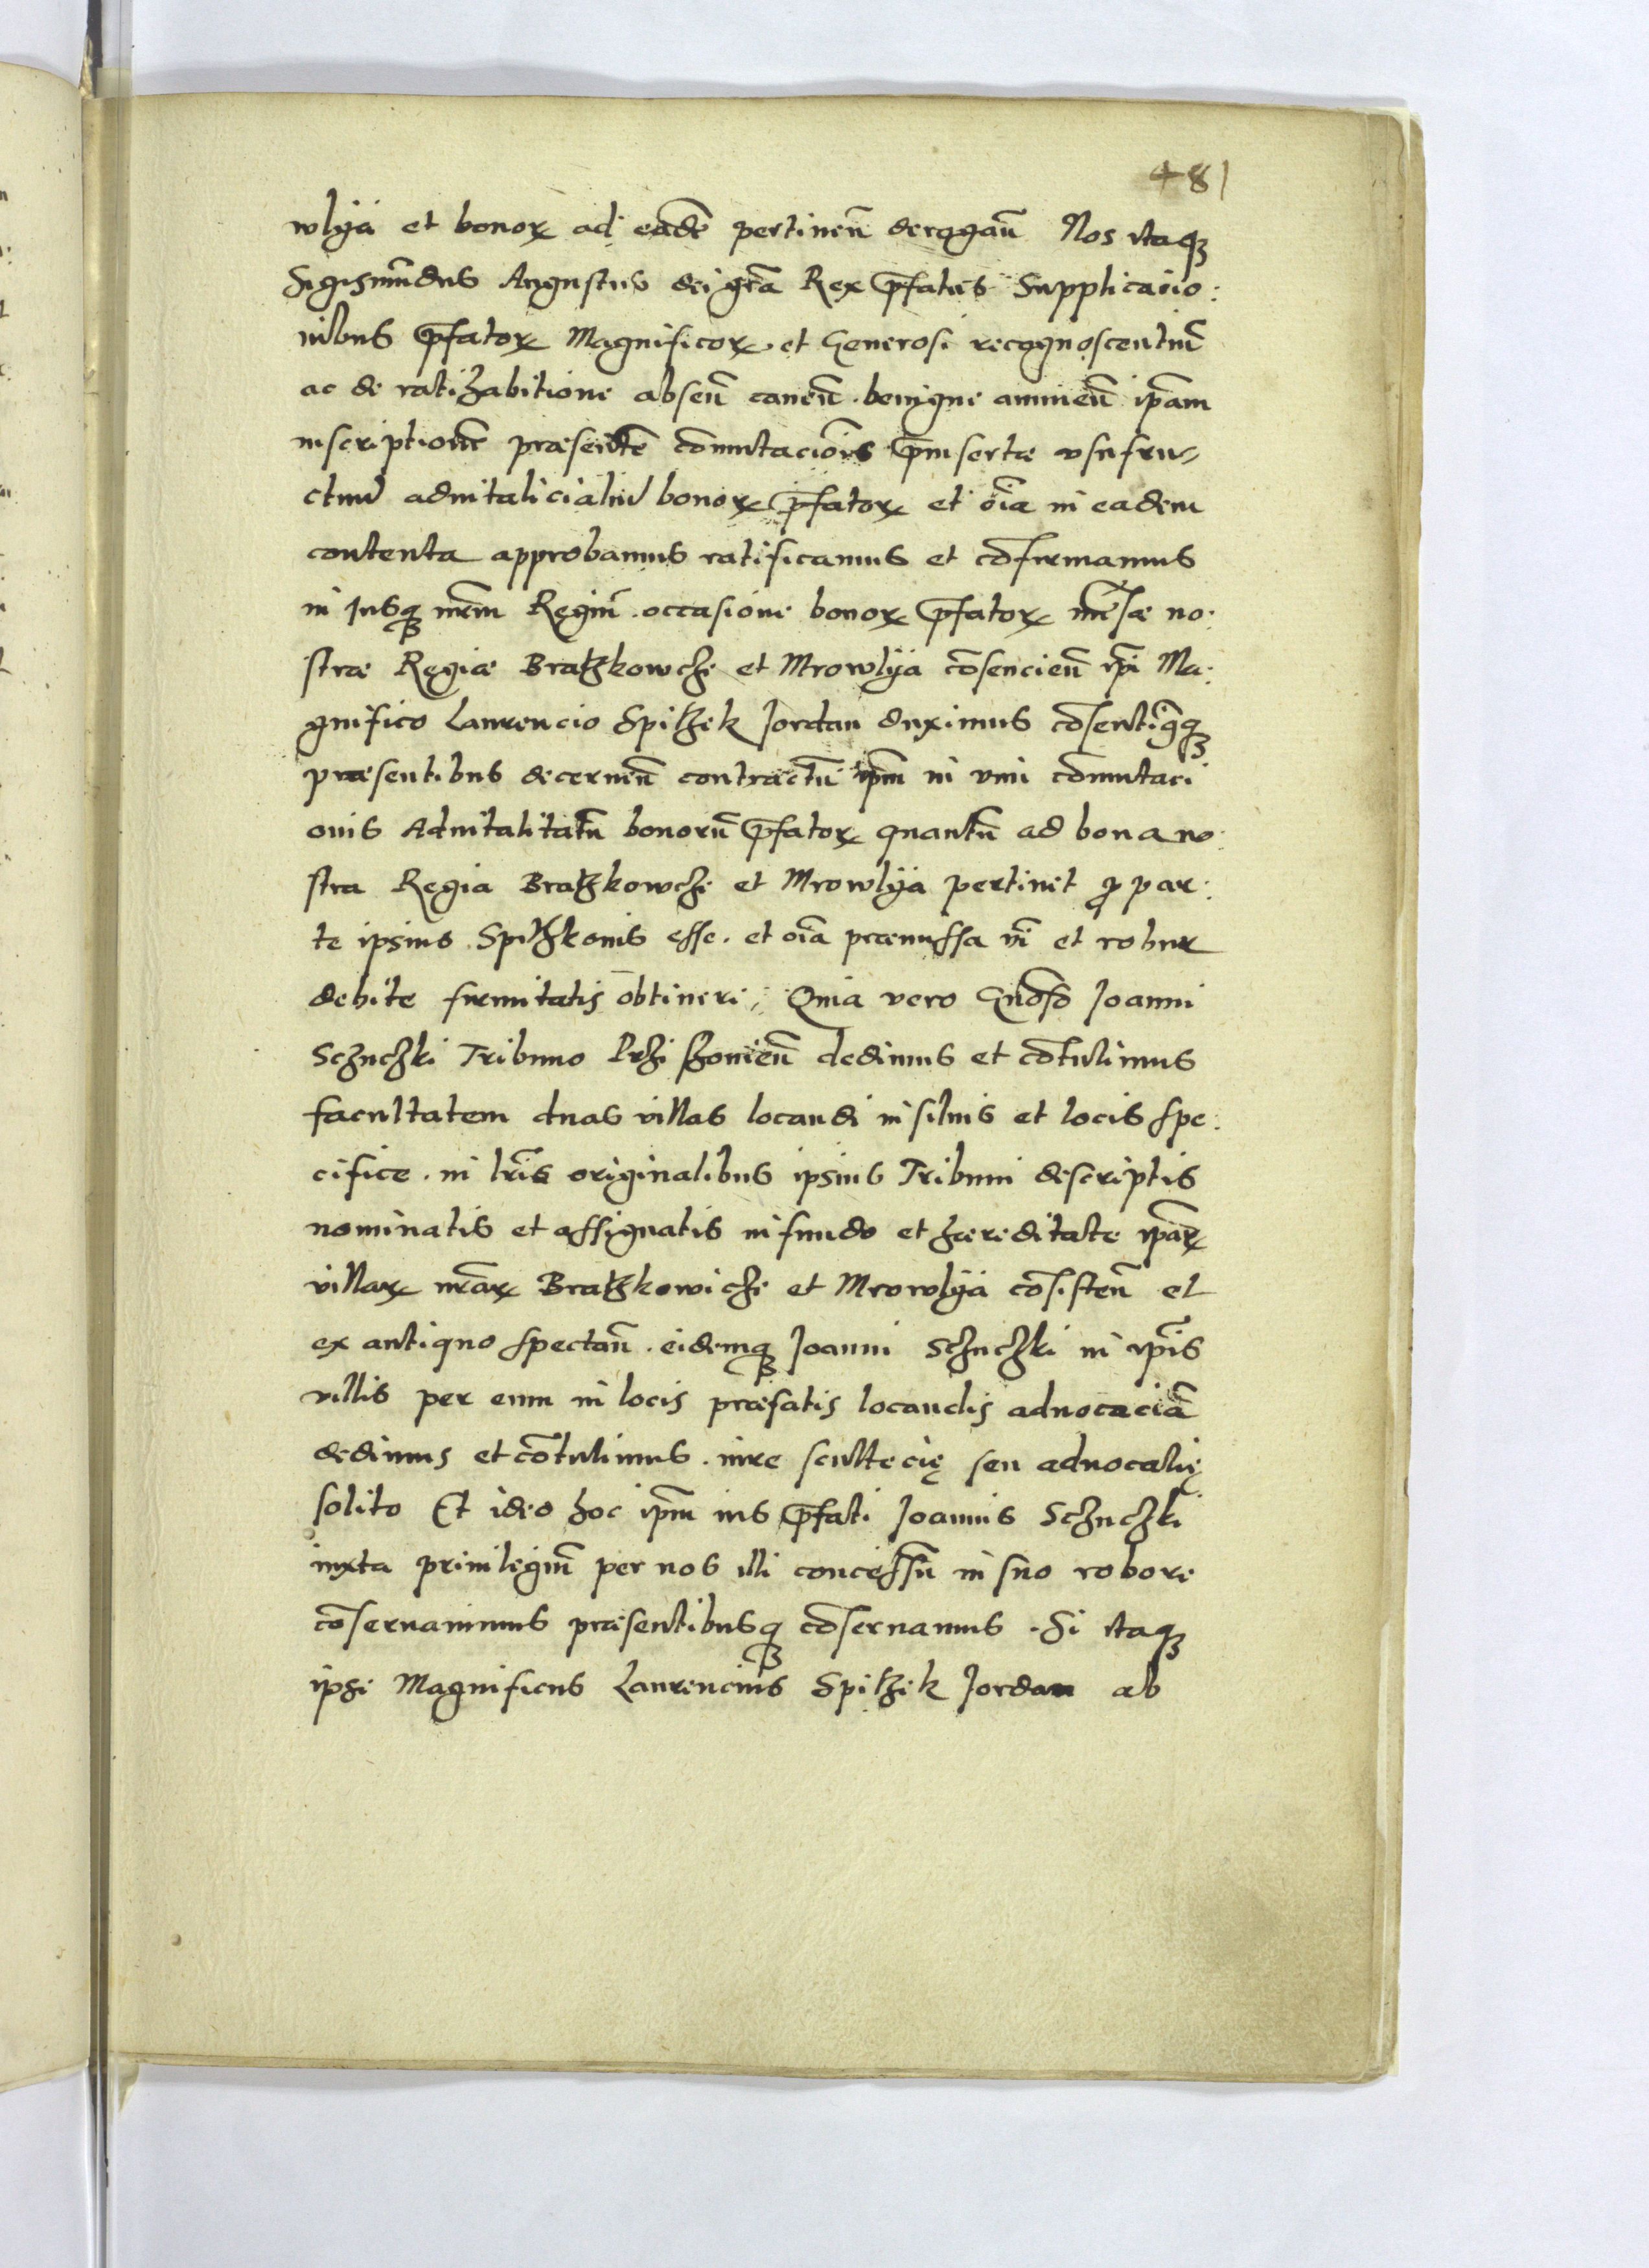 481
wlyä et bonoꝝ ad eadē pertineñ deroganñ Nos itaqꝫ
Sigismūdus Augustus dei gr̃a Rex p̄fatus Supplicacio:
nibus p̄fatoꝝ Magnificoꝝ et Generosi recognoscentiū
ac de ratihabitione abseñ caueñ. benigne annueñ ip̄am
inscriptionē præsentē cōmutacionis p̄insertæ vsufru⸗
ctuū aduitalicialiū bonoꝝ p̄fatoꝝ et oĩa in eadem
contenta approbamus ratificamus et cōfirmamus
in Jusqꝫ nr̃m Regiū occasione bonoꝝ p̄fatoꝝ mēsæ no:
stræ Regiæ Bratzkowcze et Mrowlyä cōsencieñ ip̄i Ma:
gnifico Laurencio Spitzek Jordan duximus cōsentiendqꝫ
præsentibus decerneñ contractū ip̄m in vim cōmutaci
onis Aduitalitatū bonorū p̄fatoꝝ quantū ad bona no:
stra Regia Bratzkowcze et Mrowlyä pertinet ꝓ par:
te ipsius Spitzkonis esse. et oĩa præmissa vī et robur
debite firmitatis obtinere. Quia vero Gn̄oso Joanni
Sczuczki Tribuno dedimus et cōtulimus
facultatem duas villas locandi in siluis et locis spe:
cifice. in lr̃is originalibus ipsius Tribuni descriptis
nominatis et assignatis in fundo et hæreditate ip̄aꝝ
villaꝝ nr̃aꝝ Bratzkowicze et Mrowlyä cōsisteñ et
ex antiquo spectañ. eidemqꝫ Joanni Sczuczki in ip̄is
villis per eum in locis præfatis locandis aduocaciā
dedimus et cōtulimus. iure scultecię seu aduocatię
solito Et ideo hoc ip̄m ius p̄fati Joannis Sczuczki
iuxta priuilegiū per nos illi concessū in suo robore
cōseruauimus præsentibusqꝫ cōseruamus. Si itaqꝫ
ipse Magnificus Laurencius Spitzek Jordan ab